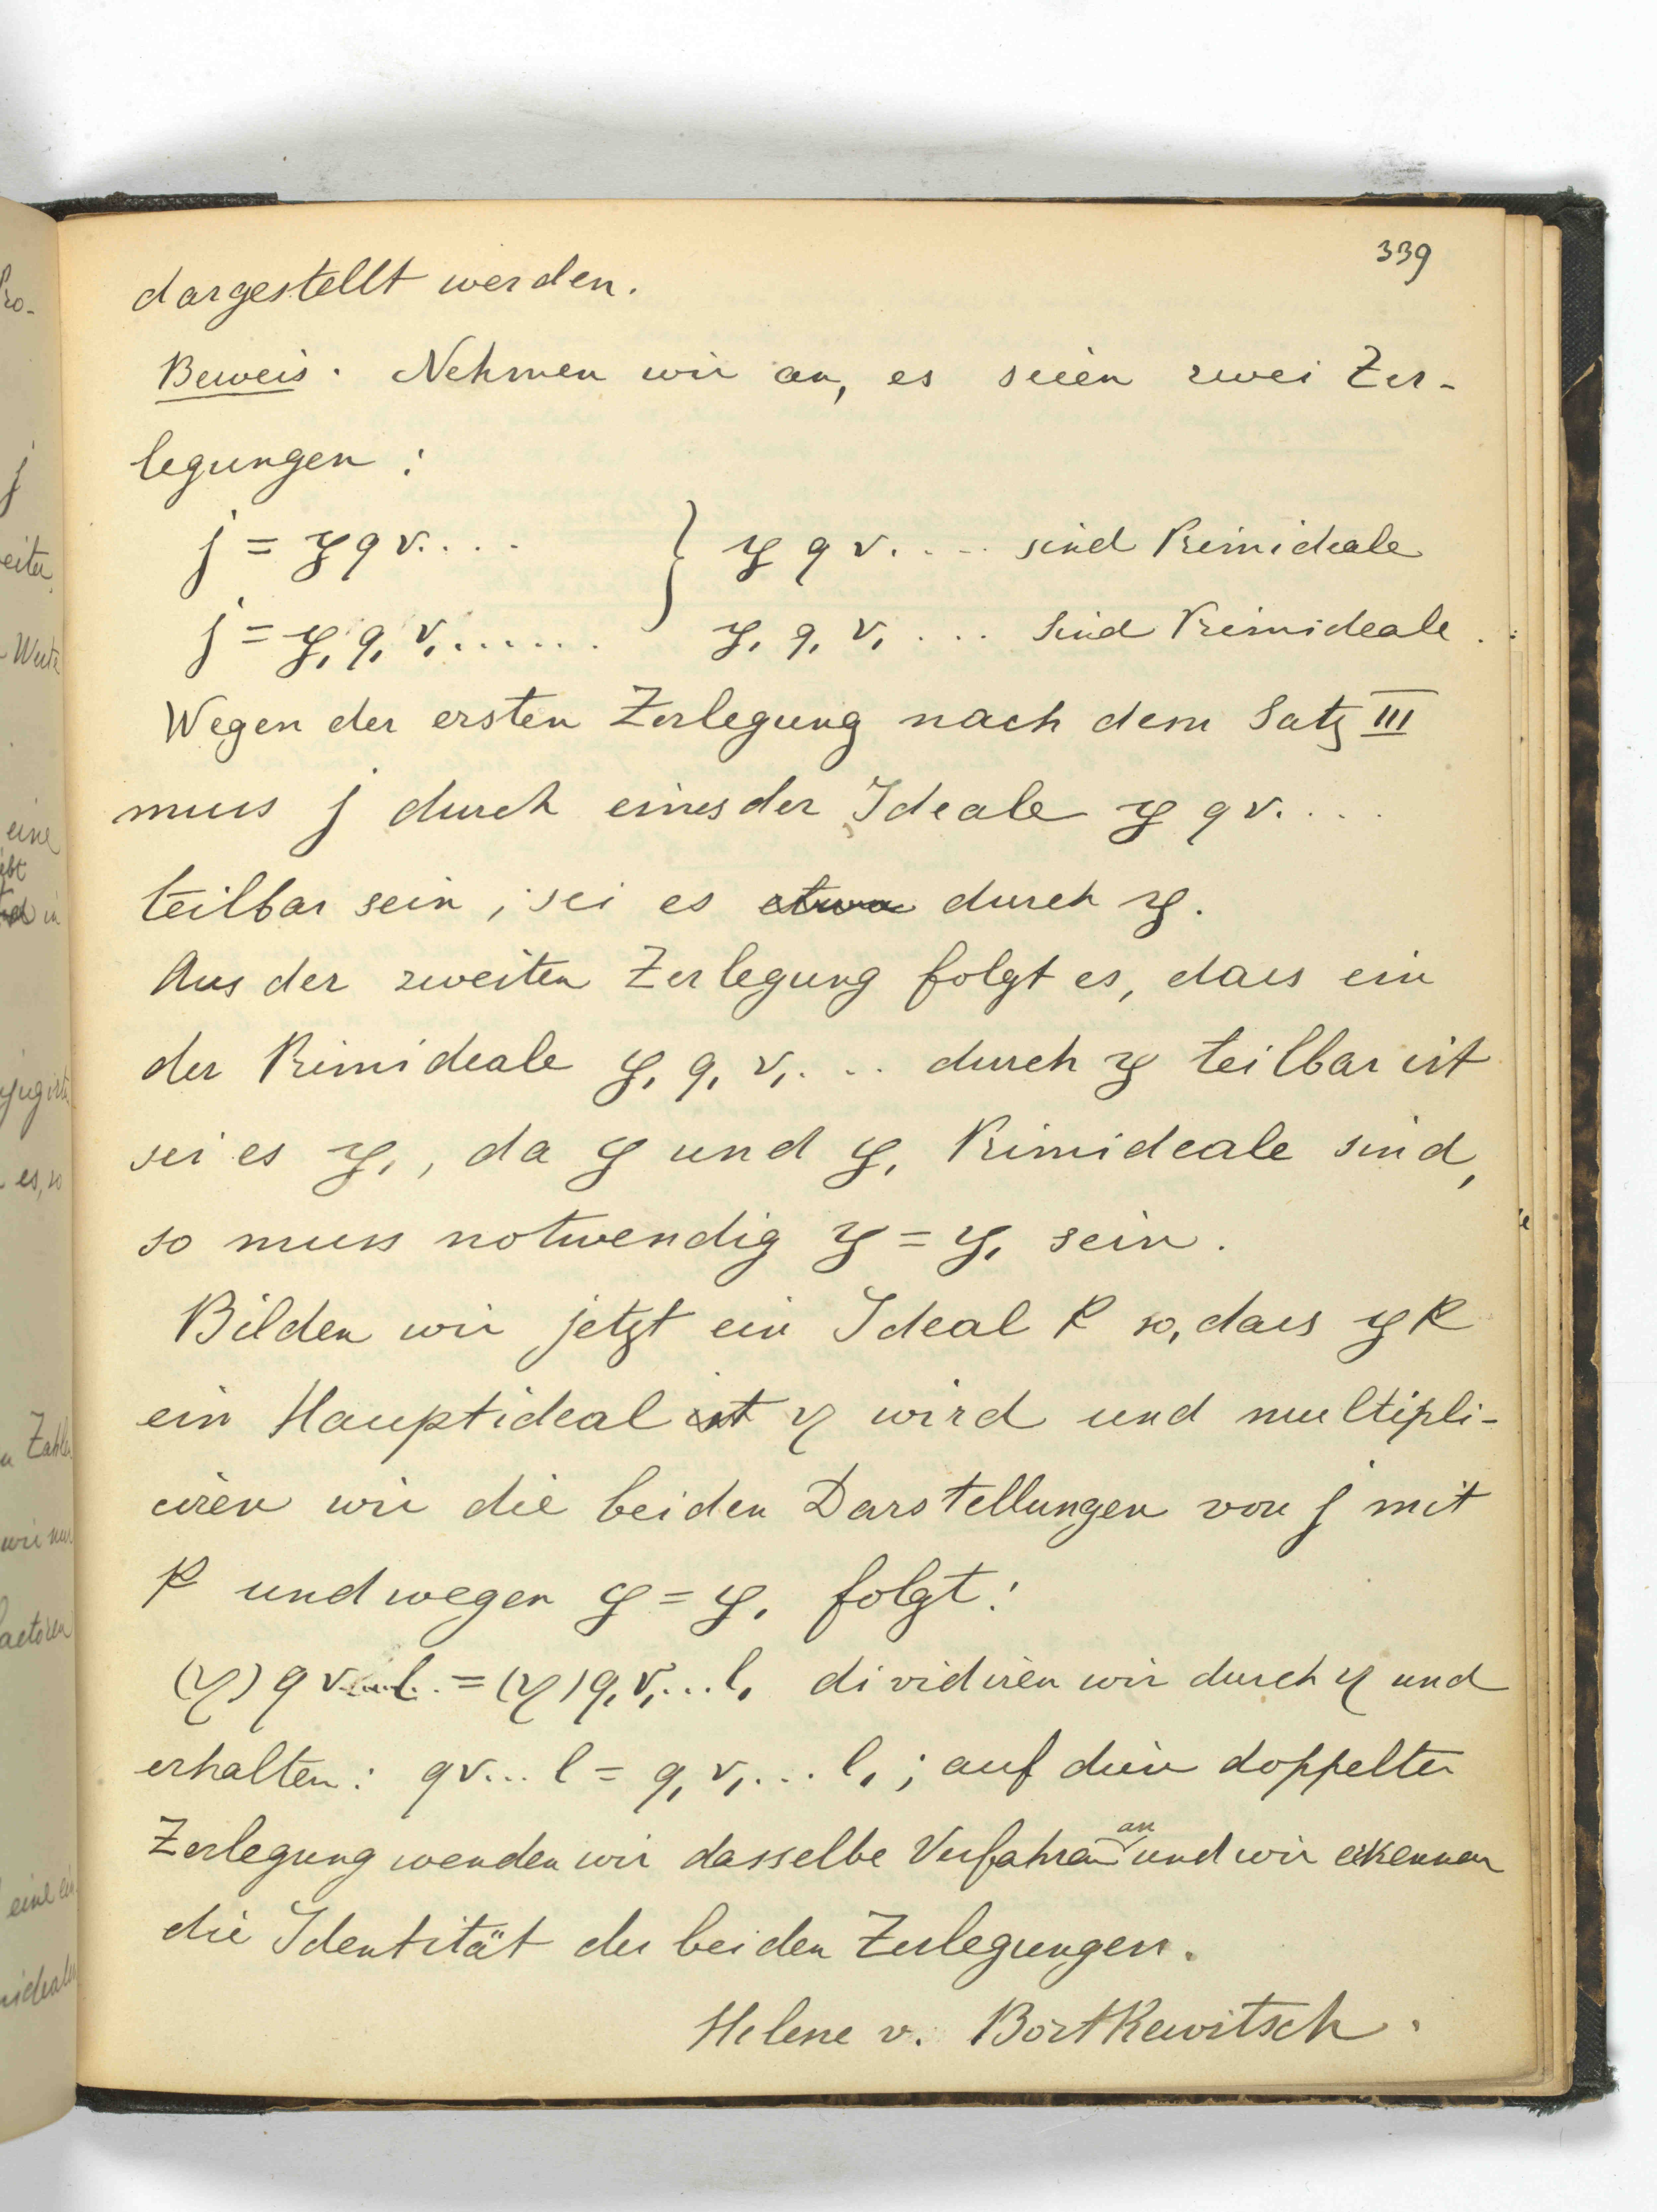 339
dargestellt werden.
Beweis. Nehmen wir an, es seien zwei Zer-
legungen:
j = 𝔭 q r.... } 𝔭 q r..... sind Primideale
j = 𝔭, q, r,...... 𝔭, q, r, ... sind Primideale.
Wegen der ersten Zerlegung nach dem Satz III
muss j durch eines der Ideale 𝔭 q r....
teilbar sein, sei es etwa durch 𝔭.
Aus der zweiten Zerlegung folgt es, dass ein
der Primideale 𝔭, q, r,... durch 𝔭 teilbar ist
sei es 𝔭,, da 𝔭 und 𝔭, Primideale sind,
so muss notwendig 𝔭 = 𝔭, sein.
Bilden wir jetzt ein Ideal k so, dass 𝔭 k
ein Hauptideal ist η wird und multipli-
ciren wir die beiden Darstellungen von j mit
k und wegen 𝔭 = 𝔭, folgt:
(η) q r...l. = (η) q, r,...l, dividiren wir durch η und
erhalten: q r... l = q, r,... l,; auf diese doppelte
Zerlegung wenden wir dasselbe Verfahren an und wir erkennen
die Identität der beiden Zerlegungen.
Helene v. Bortkewitsch.